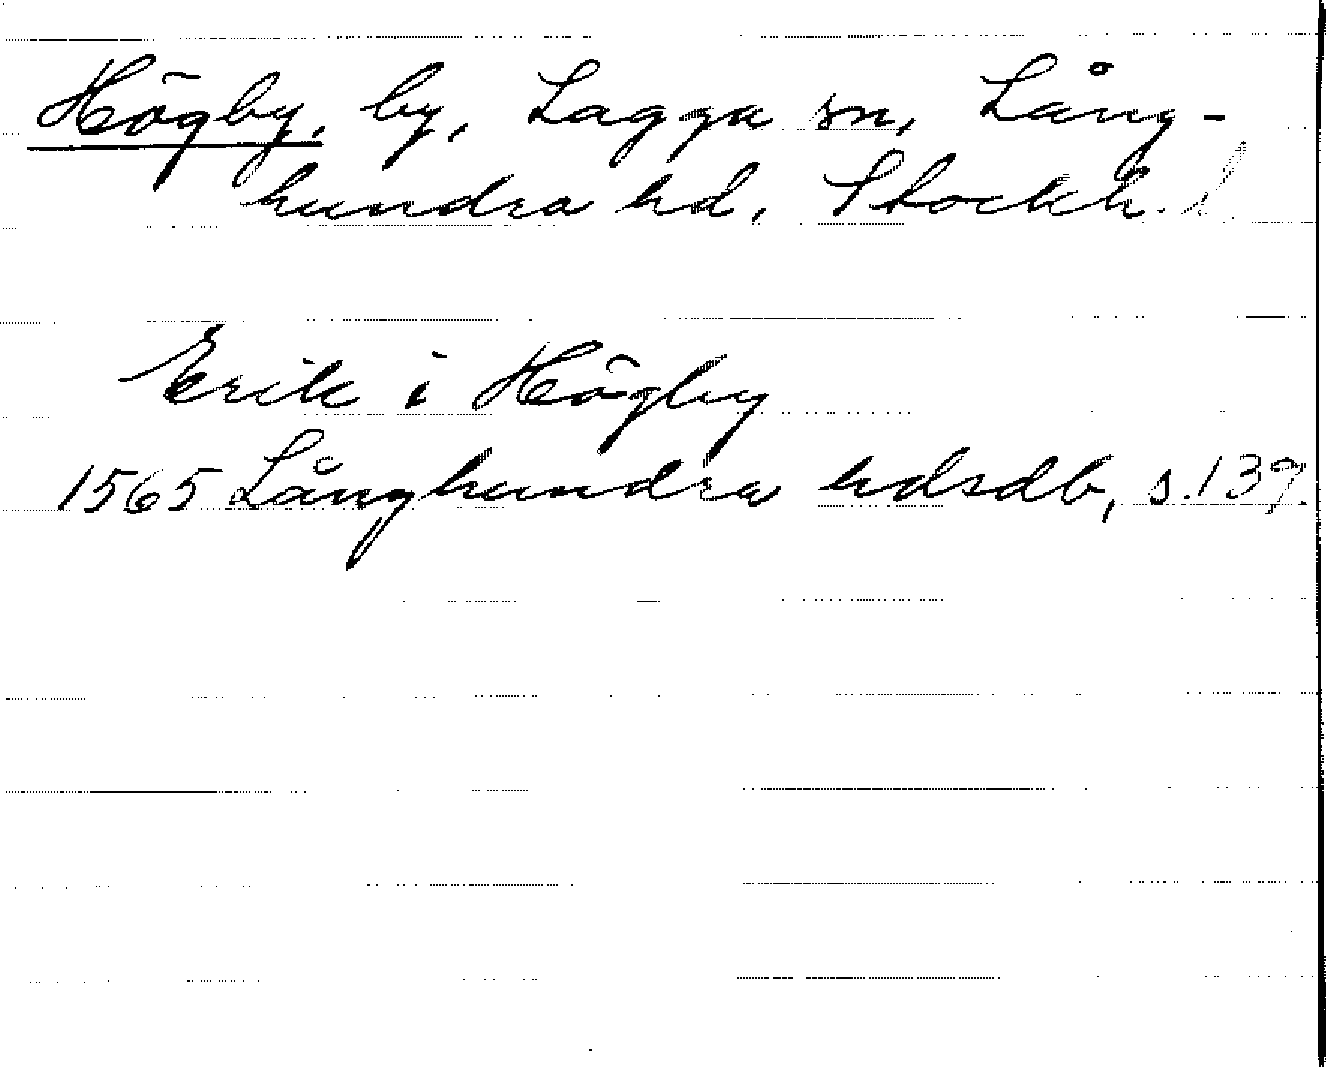 Högby, by, Lagga sn, Lång-
hundra hd, Stockh. l
Erik i Högby
1565 Långhundra hdsdb, s. 139.